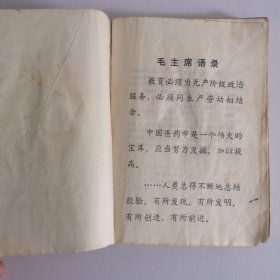 毛主席语录
教育必须为无产阶级政治
服务，必须同生产劳动相结
合。
中国医药学是一个伟大的
宝库，应当努力发掘，加以提
高。
……人类总得不断地总结
经验，有所发现，有所发明，
有所创造，有所前进。